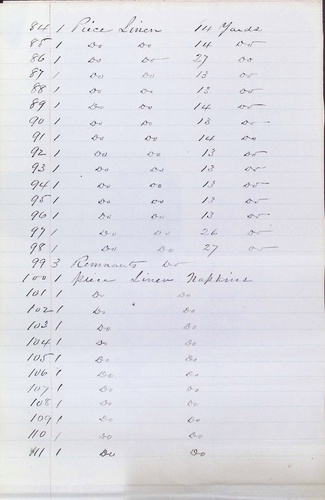 84 1 Piece Linen 14 Yards
85 1 Do Do 14 Do
86 1 Do Do 27 Do
87 1 Do Do 13 Do
88 1 Do Do 13 Do
89 1 Do Do 14 Do
90 1 Do Do 13 Do
91 1 Do Do 14 Do
92 1 Do Do 13 Do
93 1 Do Do 13 Do
94 1 Do Do 13 Do
95 1 Do Do 13 Do
96 1 Do Do 13 Do
97 1 Do Do 26 Do
98 1 Do Do 27 Do
99 3 Remnants Do
100 1 Piece Linen Napkins
101 1 Do Do
102 1 Do Do
103 1 Do Do
104 1 Do Do
105 1 Do Do
106 1 Do Do
107 1 Do Do
108 1 Do Do
109 1 Do Do
110 1 Do Do
111 1 Do Do